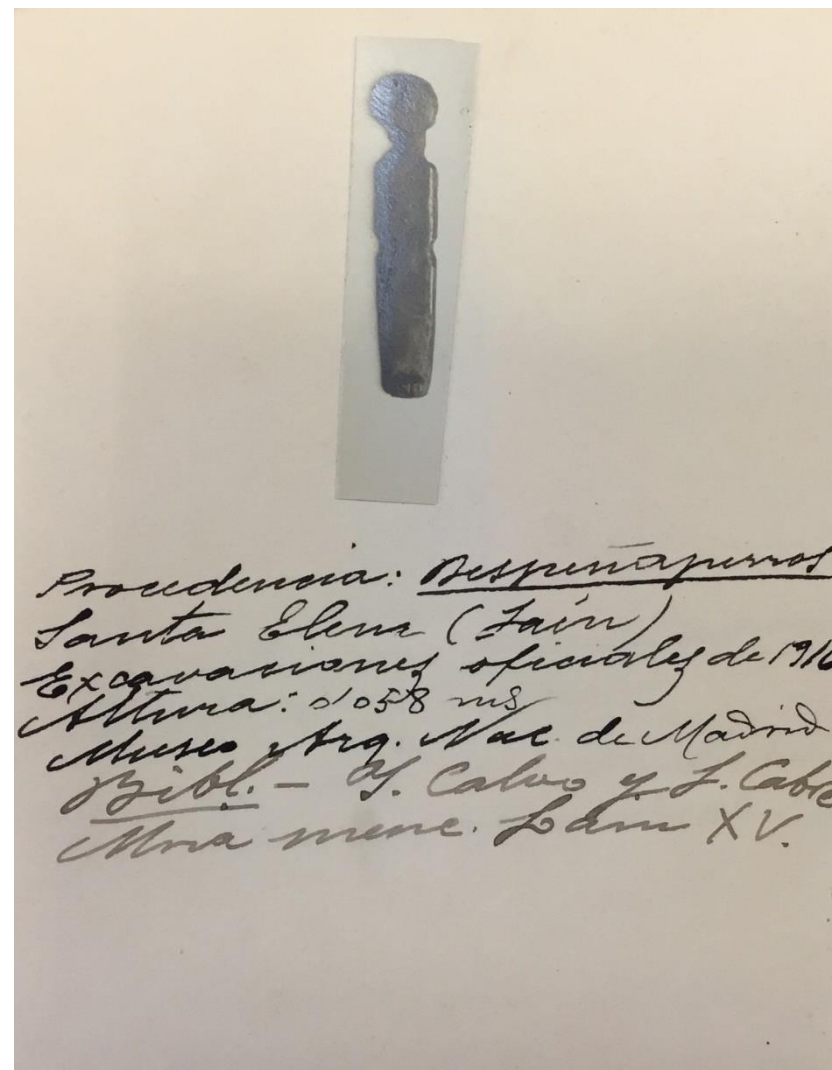 Procedencia: Despeñaperros
Santa Elena (Jaén)
Excavaciones oficiales de 191
Altura: 0'058 ms
Museo Arq. Nac. de Madrid
Bibl. - I. Calvo y J. Cabr
Mria menc. Lám XV.